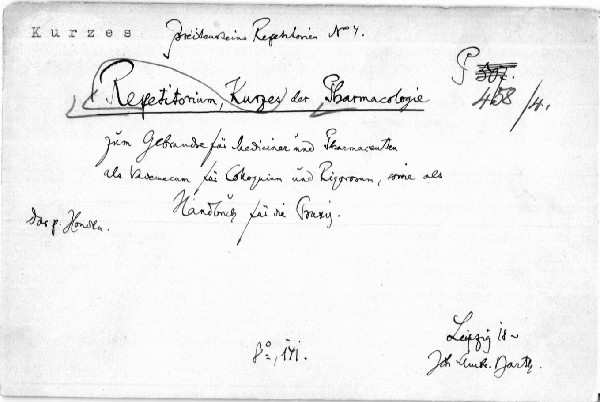 Kurzes
Breitensteins Repetitorien No 4.
Repetitorium, Kurzes der Pharmacologie
P 458/4.
zum Gebrauche für Mediciner und Pharmaceuten
als Vademecum für Colloquium und Rigorosum, sowie als
Handbuch für die Praxis.
8°, 141.
Leipzig 18~
Joh Ambr. Barth.